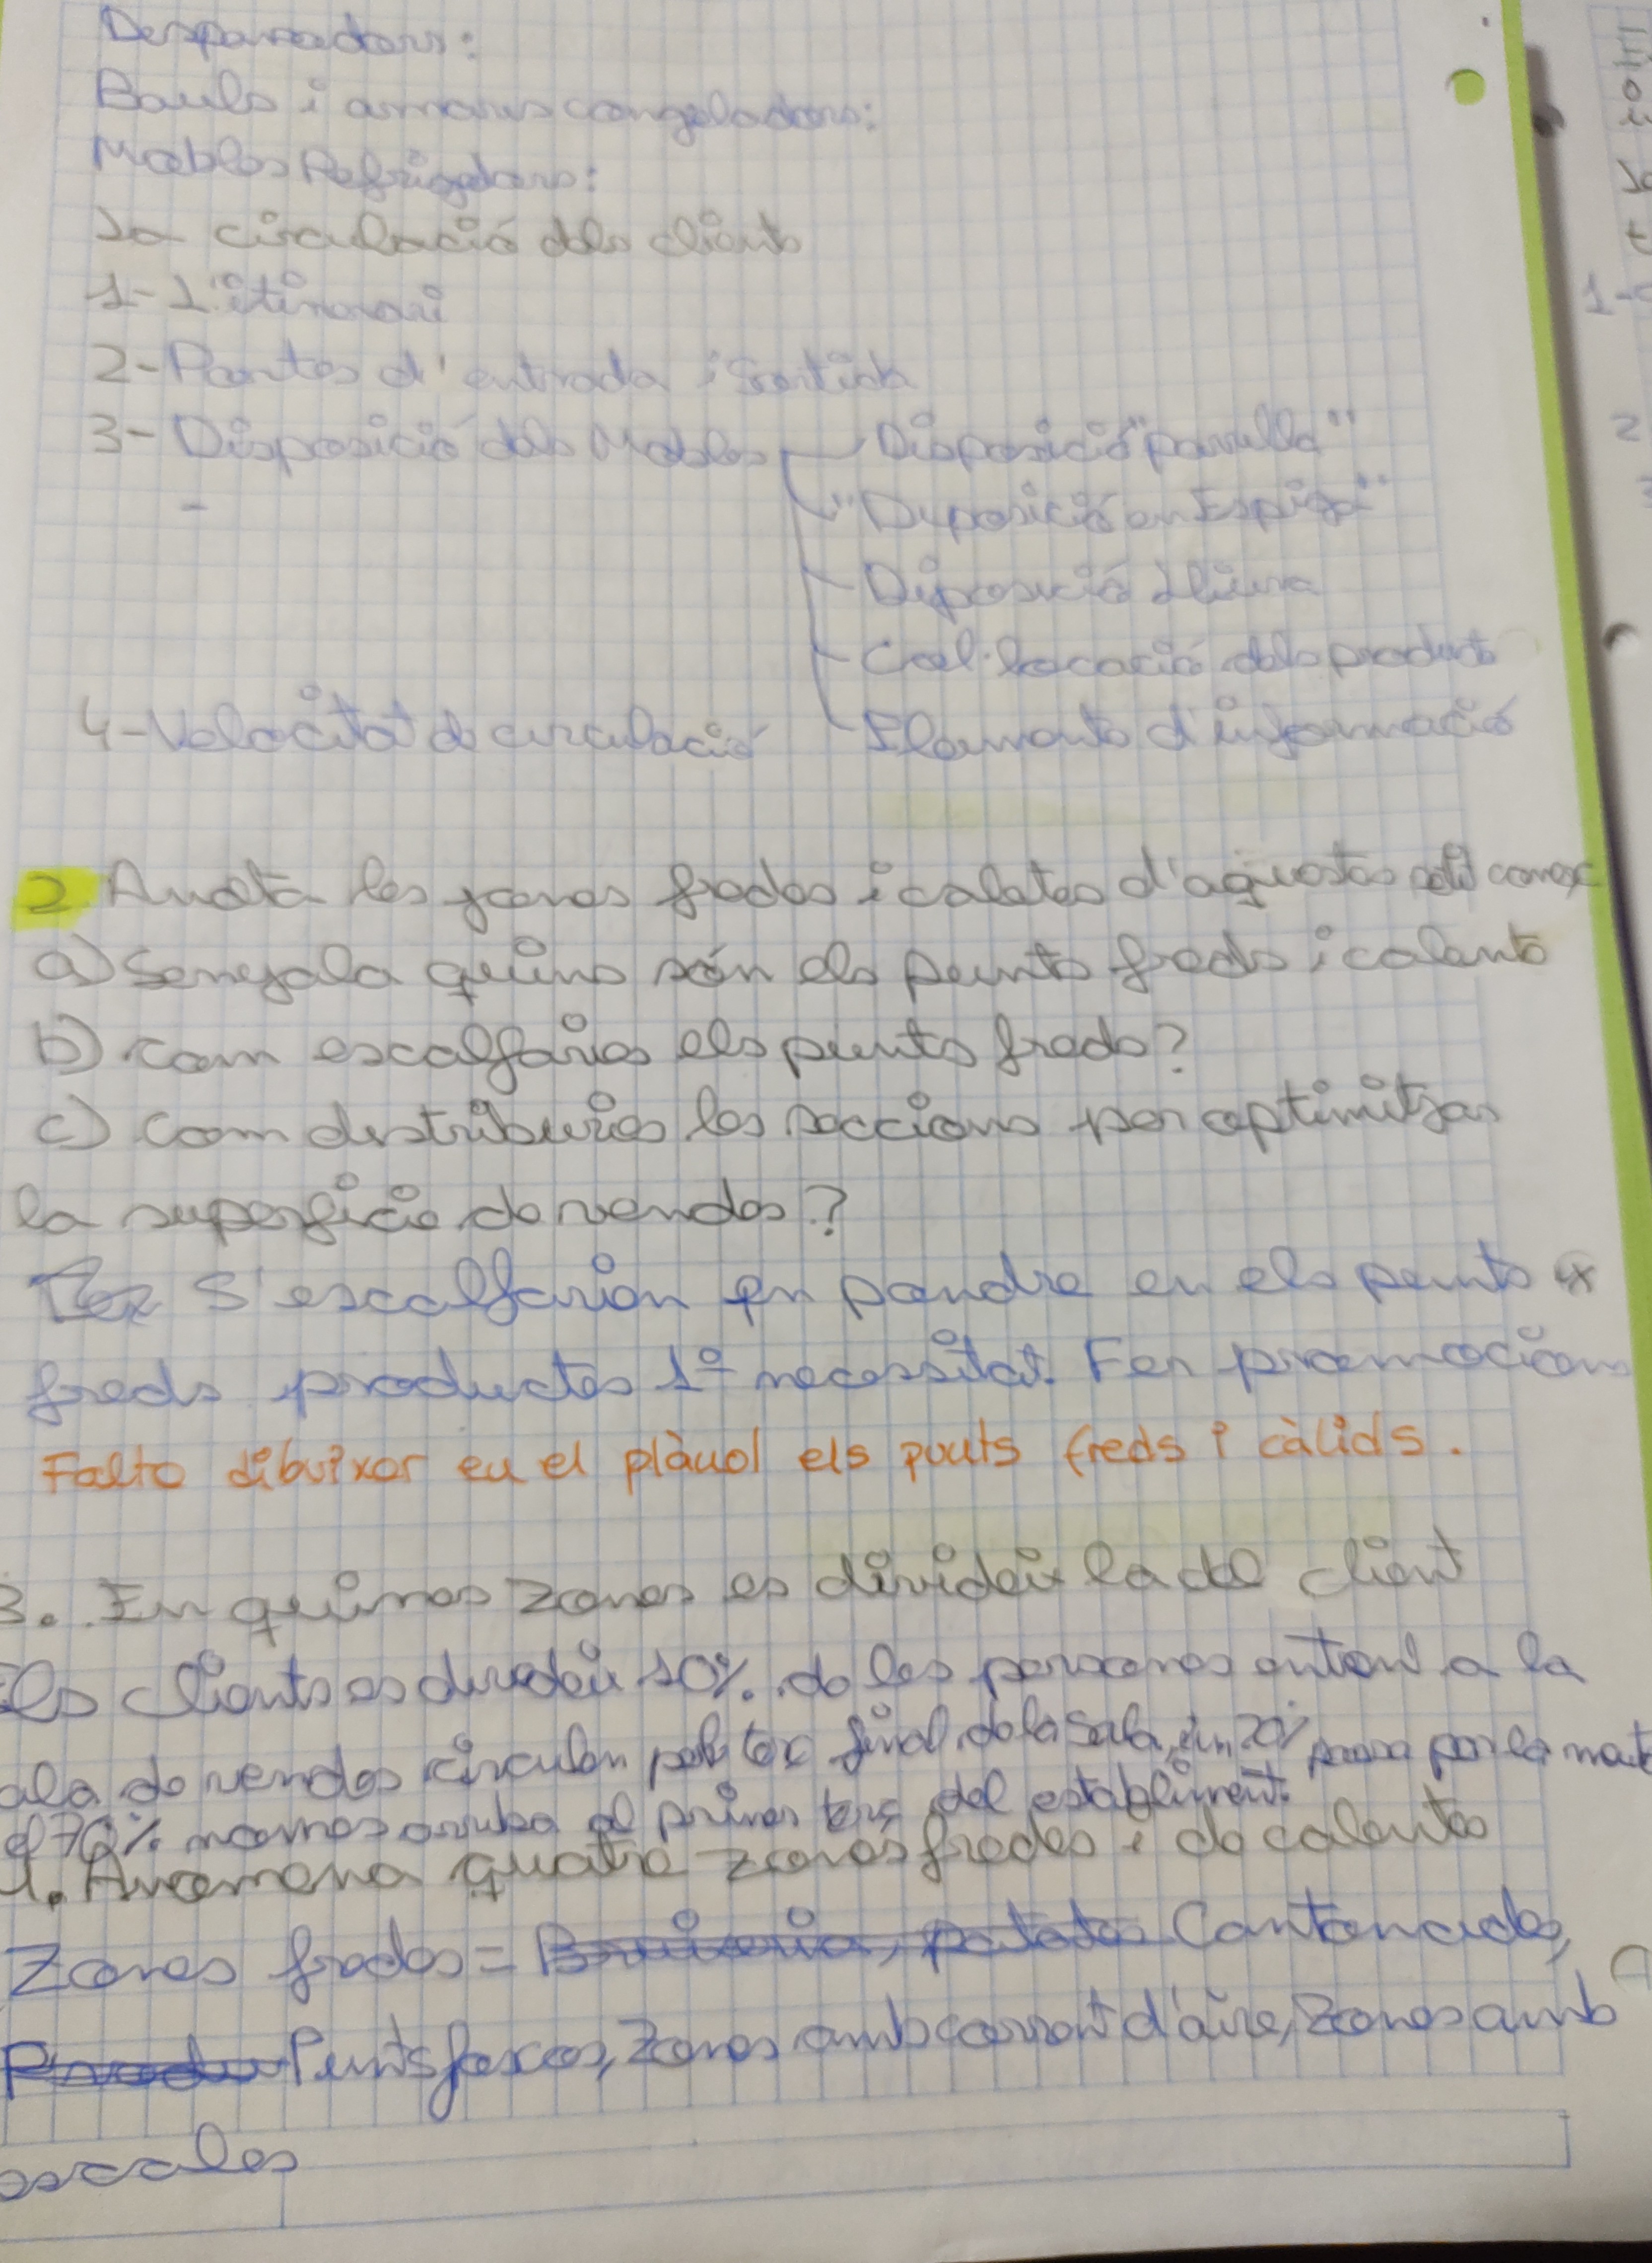 Desparadors:
Bauls i armaris congeladors:
Mobles Refrigadors:
La circulació dels clients
1- L'itinerari
2- Portes d'entrada i Sortida
3- Disposició dels Mobles
Disposició "parrilla"
"Disposició en Espiga"
Disposició Lliure
Col·locació dels products
Elements d'informació
4- Velocitat de circulació
2 Anota les zones fredes i caletes d'aquestes
a) Senyala quins són els punts freds i calents
b) com escalfaries els punts freds?
c) com distriburies les seccions per optimitzar
la superficie de vendes?
S'escalfarien en pondre en els punts
freds productes 1º necessitat. Fer promocions
Falta dibuixar en el plànol els punts freds i càlids.
3. En quines zones es divideix la del client
Els clients es divideix 10% de les persones entren a la
ala de vendes circulen pel terç final de la Sala, un 20% passa per la
el 70% nomes arriba al primer terç del establiment.
1. Anomena quatre zones fredes i de calentes
Zones fredes = Bruioria, patates Cantonades,
Produ Punts foscos, Zones amb corrent d'aire, Zones amb
escales
1-
2